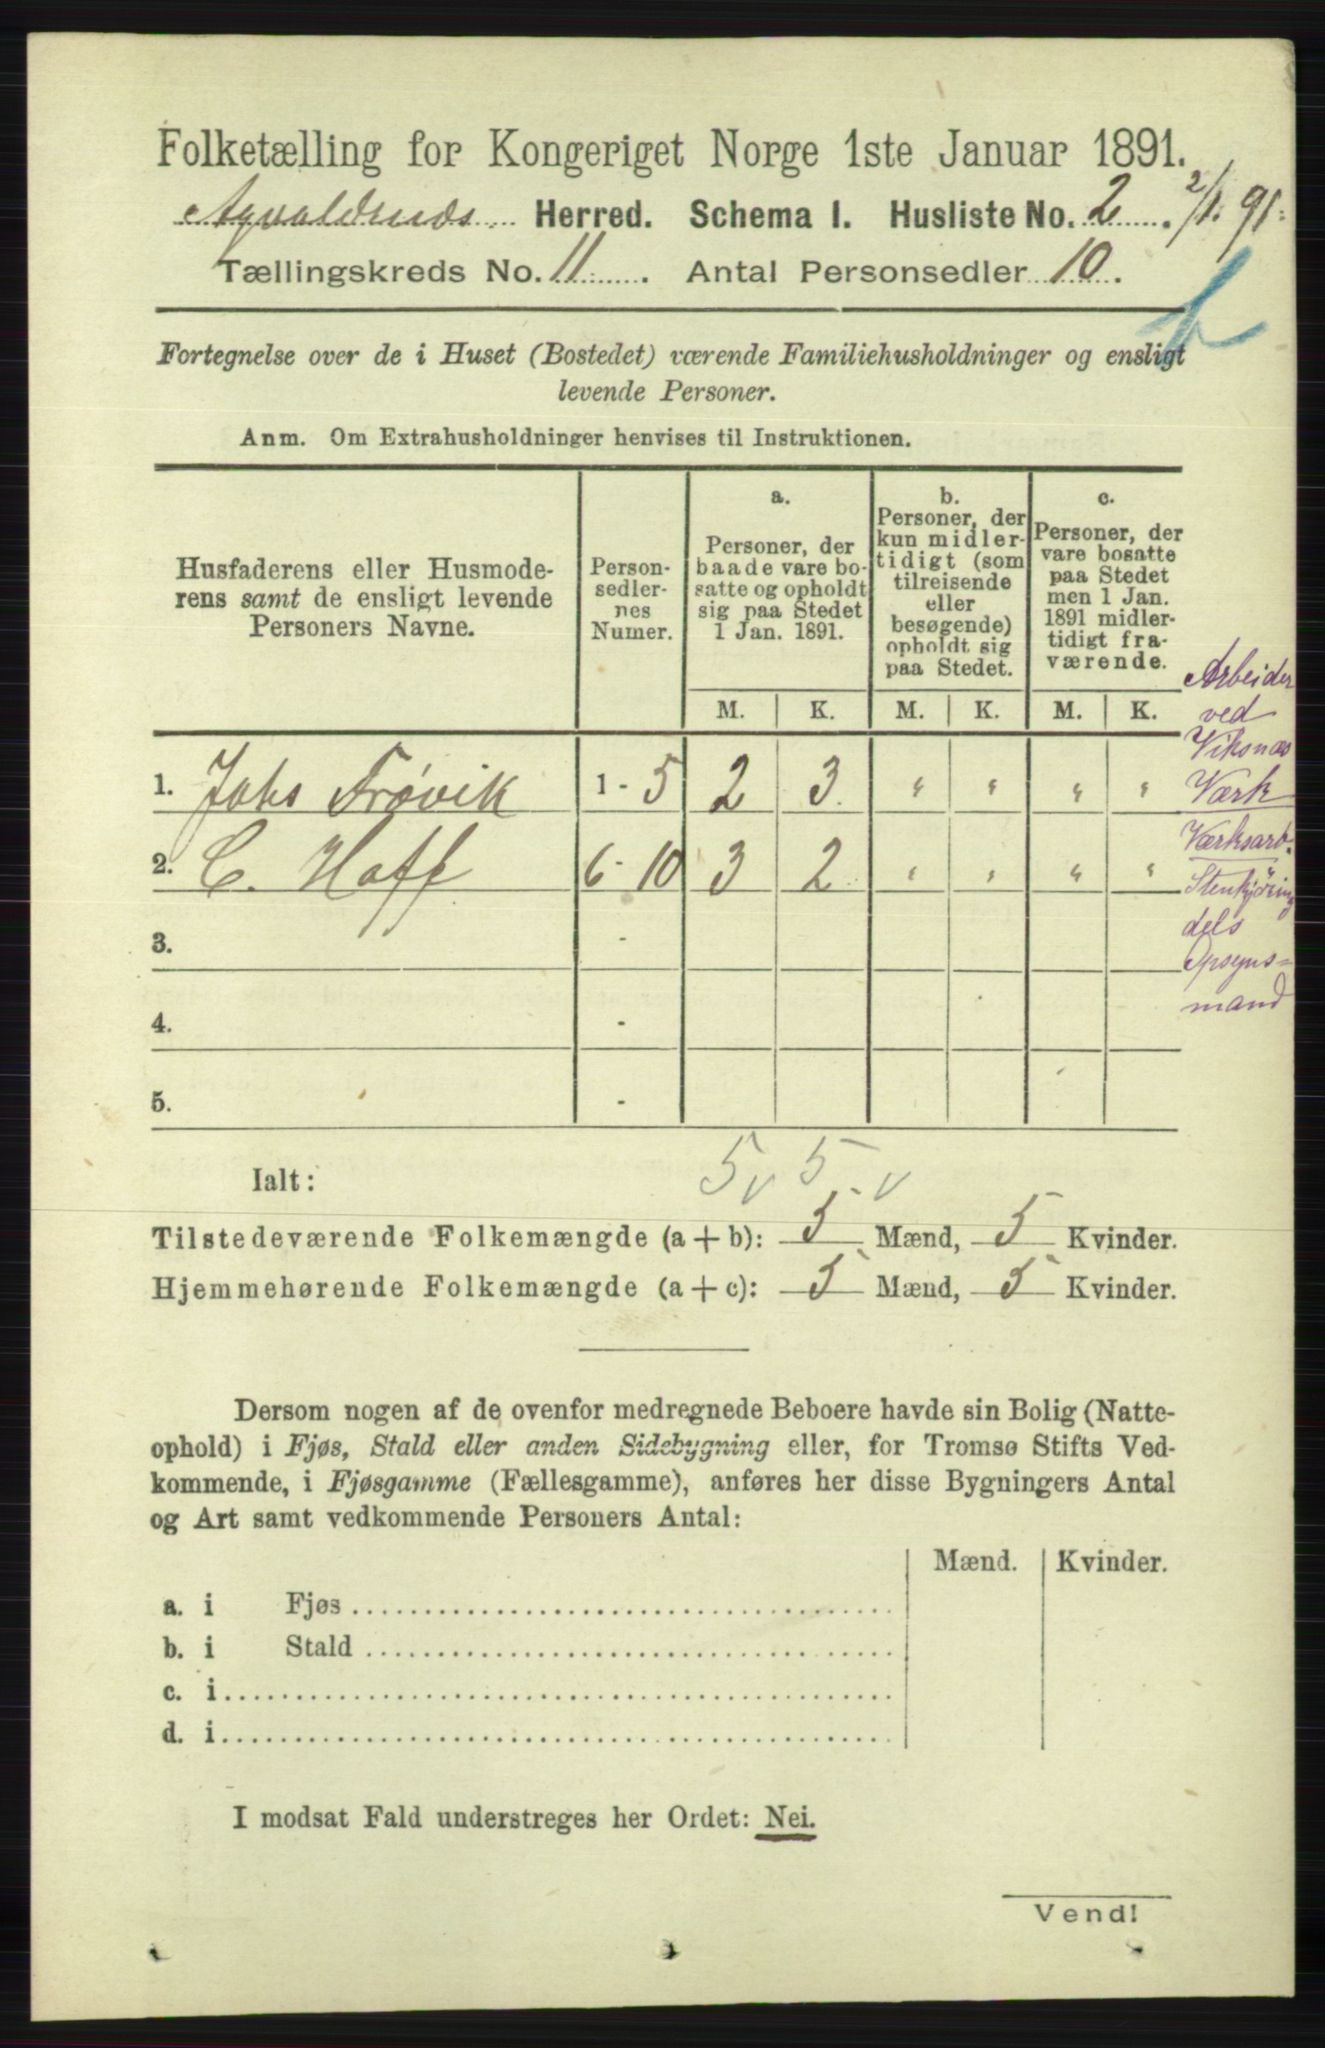 Folketælling for Kongeriget Norge 1ste Januar 1891.
Herred. Schema 1. Husliste No. 2. 2/1. 91.
Tællingskreds No. 11. Antal Personsedler 10.
Fortegnelse over de i Huset (Bostedet) værende Familiehusholdninger og ensligt
levende Personer.
Anm. Om Extrahusholdninger henvises til Instruktionen.
Husfaderens eller Husmode-
rens samt de ensligt levende
Personers Navne.
Person-
sedler-
nes
Numer.
a.
Personer, der
baade vare bo-
satte og opholdt
sig paa Stedet
1 Jan. 1891.
b.
Personer, der
kun midler-
tidigt (som
tilreisende
eller
besøgende)
opholdt sig
paa Stedet.
c.
Personer, der
vare bosatte
paa Stedet
men 1 Jan.
1891 midler-
tidigt fra-
værende.
M. K. M. K. M. K.
Arbeider
ved
Viksnæs
Værk
1. Johs Frøvik 1 - 5 2 3 " " " "
2. C. Hoff 6 - 10 3 2 " " " "
Værksarb.
Stenkjöring
dels
Opsyns-
mand
3. -
4. -
5. -
Ialt: 5 v 5 v
Tilstedeværende Folkemængde (a + b): 5 Mænd, 5 Kvinder.
Hjemmehørende Folkemængde (a + c): 5 Mænd, 5 Kvinder.
Dersom nogen af de ovenfor medregnede Beboere havde sin Bolig (Natte-
ophold) i Fjøs, Stald eller anden Sidebygning eller, for Tromsø Stifts Ved-
kommende, i Fjøsgamme (Fællesgamme), anføres her disse Bygningers Antal
og Art samt vedkommende Personers Antal:
Mænd. Kvinder.
a. i Fjøs
b. i Stald
c. i
d. i
I modsat Fald understreges her Ordet: Nei.
Vend!